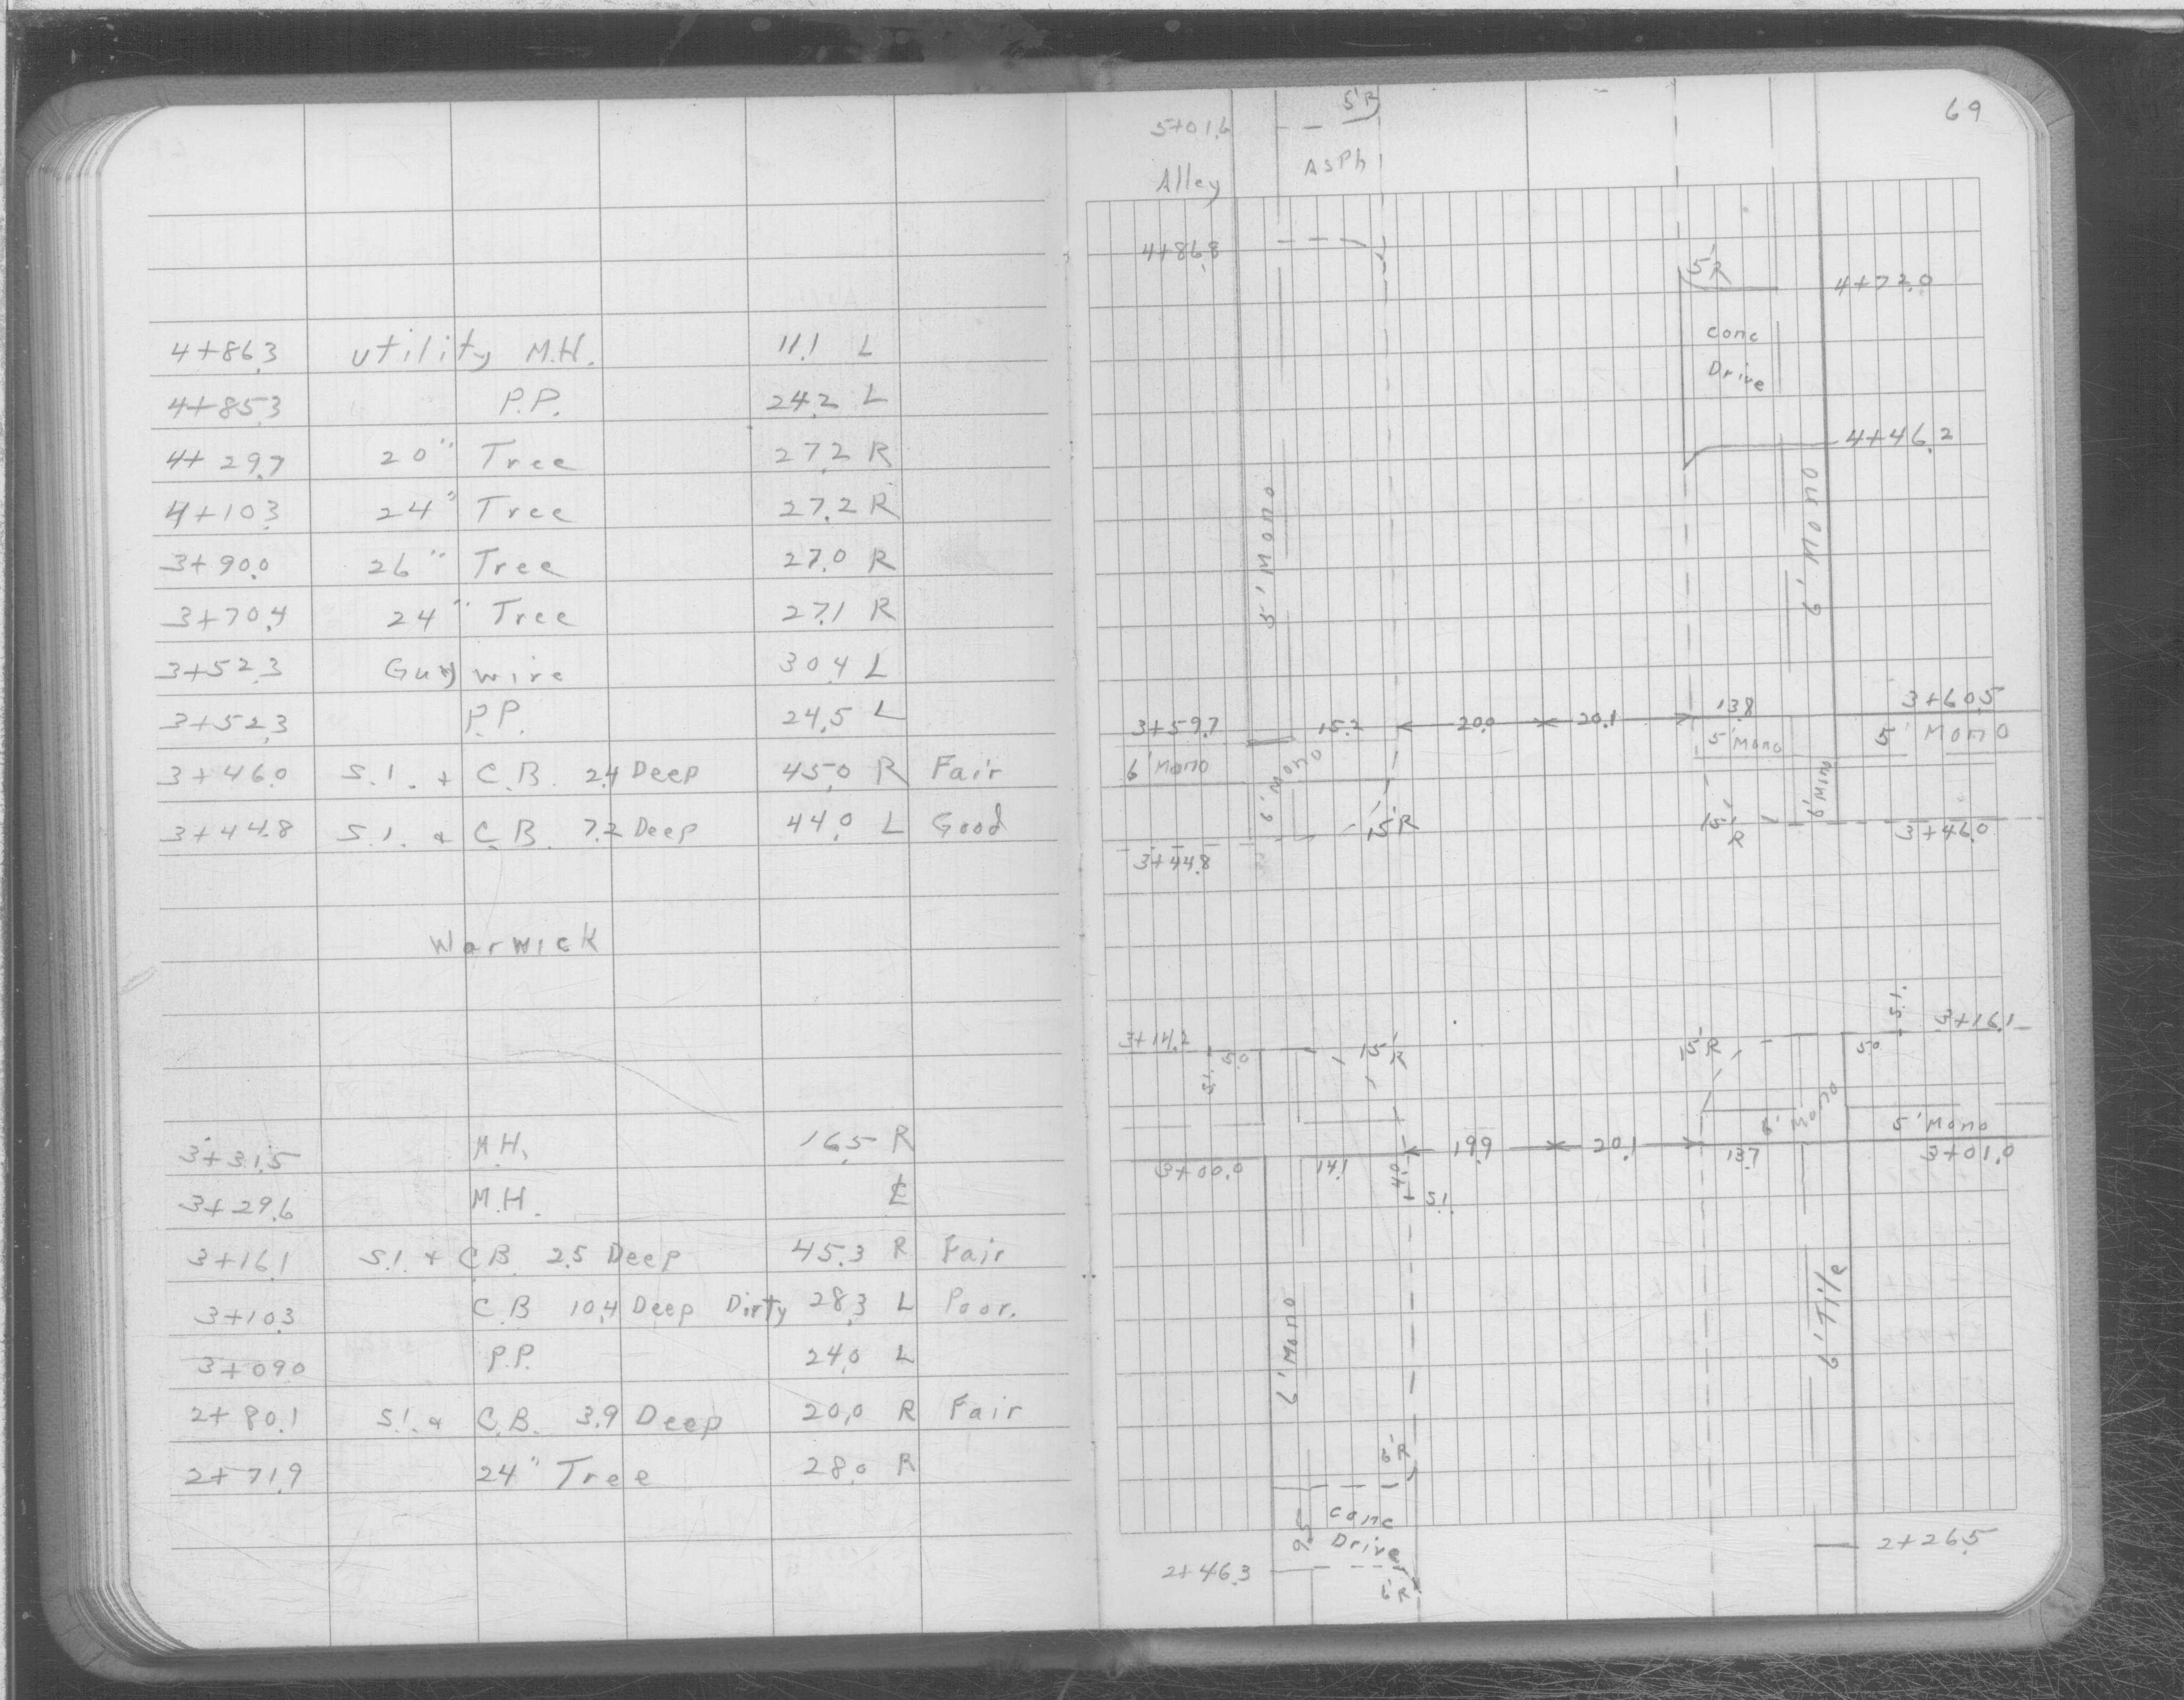 4+86.3 utility M.H. 11.1 L
4+85.3 P.P. 24.2 L
4+29.7 20" Tree 27.2 R
4+10.3 24" Tree 27.2 R
3+90.0 26" Tree 27.0 R
3+70.4 24" Tree 27.1 R
3+52.3 Guy wire 30.4 L
3+52.3 P.P. 24.5 L
3+46.0 S.I. + C.B. 2.4 Deep 45.0 R Fair
3+44.8 S.I. & C.B. 7.2 Deep 44.0 L Good
Warwick
3+31.5 M.H. 16.5 R
3+29.6 M.H. ℄
3+16.1 S.I. + C.B. 2.5 Deep 45.3 R Fair
3+10.3 C.B 10.4 Deep Dirty 28.3 L Poor.
3+09.0 P.P. 24.0 L
2+80.1 S.I. & C.B. 3.9 Deep 20.0 R Fair
2+71.9 24" Tree 28.0 R
69
5'R
5+01.6
Asph
Alley
4+86.8
5'R
4+72.0
conc
Drive
4+46.2
5' Mono
6' Mono
3+59.7 15.2 20.0 20.1 13.8 3+60.5
6' Mono
6' Mono
5' Mono
5' Mono
6' Mono
15'R
15'R
3+44.8
3+46.0
3+14.2 5.0 15'R
S.I.
15'R 5.0 S.I. 3+16.1
6' Mono
5' Mono
3+00.0 14.1 19.9 20.1 13.7 3+01.0
4.0
S.I.
6' Mono
6' Tile
6'R
conc
Drive
9.5
2+46.3
6'R
2+26.5